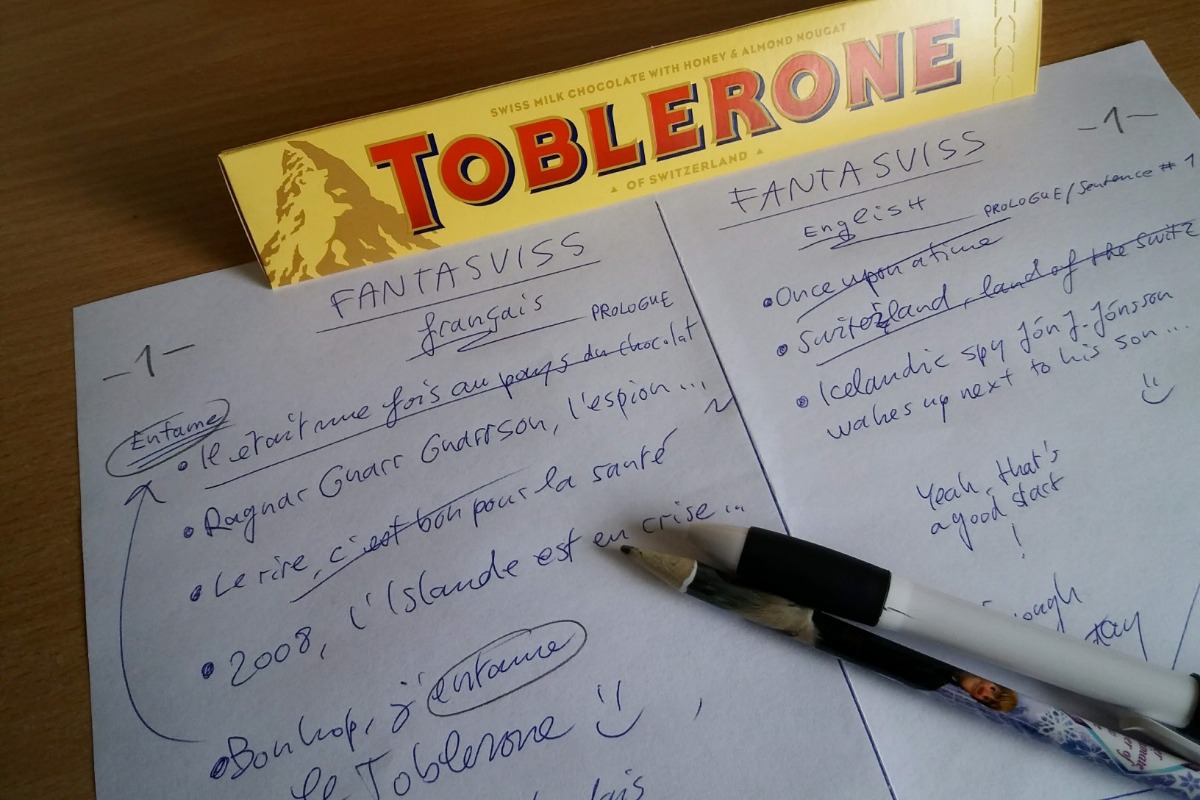 SWISS MILK CHOCOLATE WITH HONEY & ALMOND NOUGAT
TOBLERONE
▲ OF SWITZERLAND ▲
FANTASVISS
français
PROLOGUE
-1-
Entame
• Il était une fois au pays du chocolat
• Ragnar Gnarr Gnarrson, l'espion...
• Le rire, c'est bon pour la santé
• 2008, l'Islande est en crise...
• Bon hop, j'entame
le Toblerone
FANTASVISS
-1-
English
PROLOGUE/Sentence # 1
• Once upon a time
• Switzerland, land of the Switz
• Icelandic spy Jón J. Jónsson
wakes up next to his son...
Yeah, that's
a good start
!